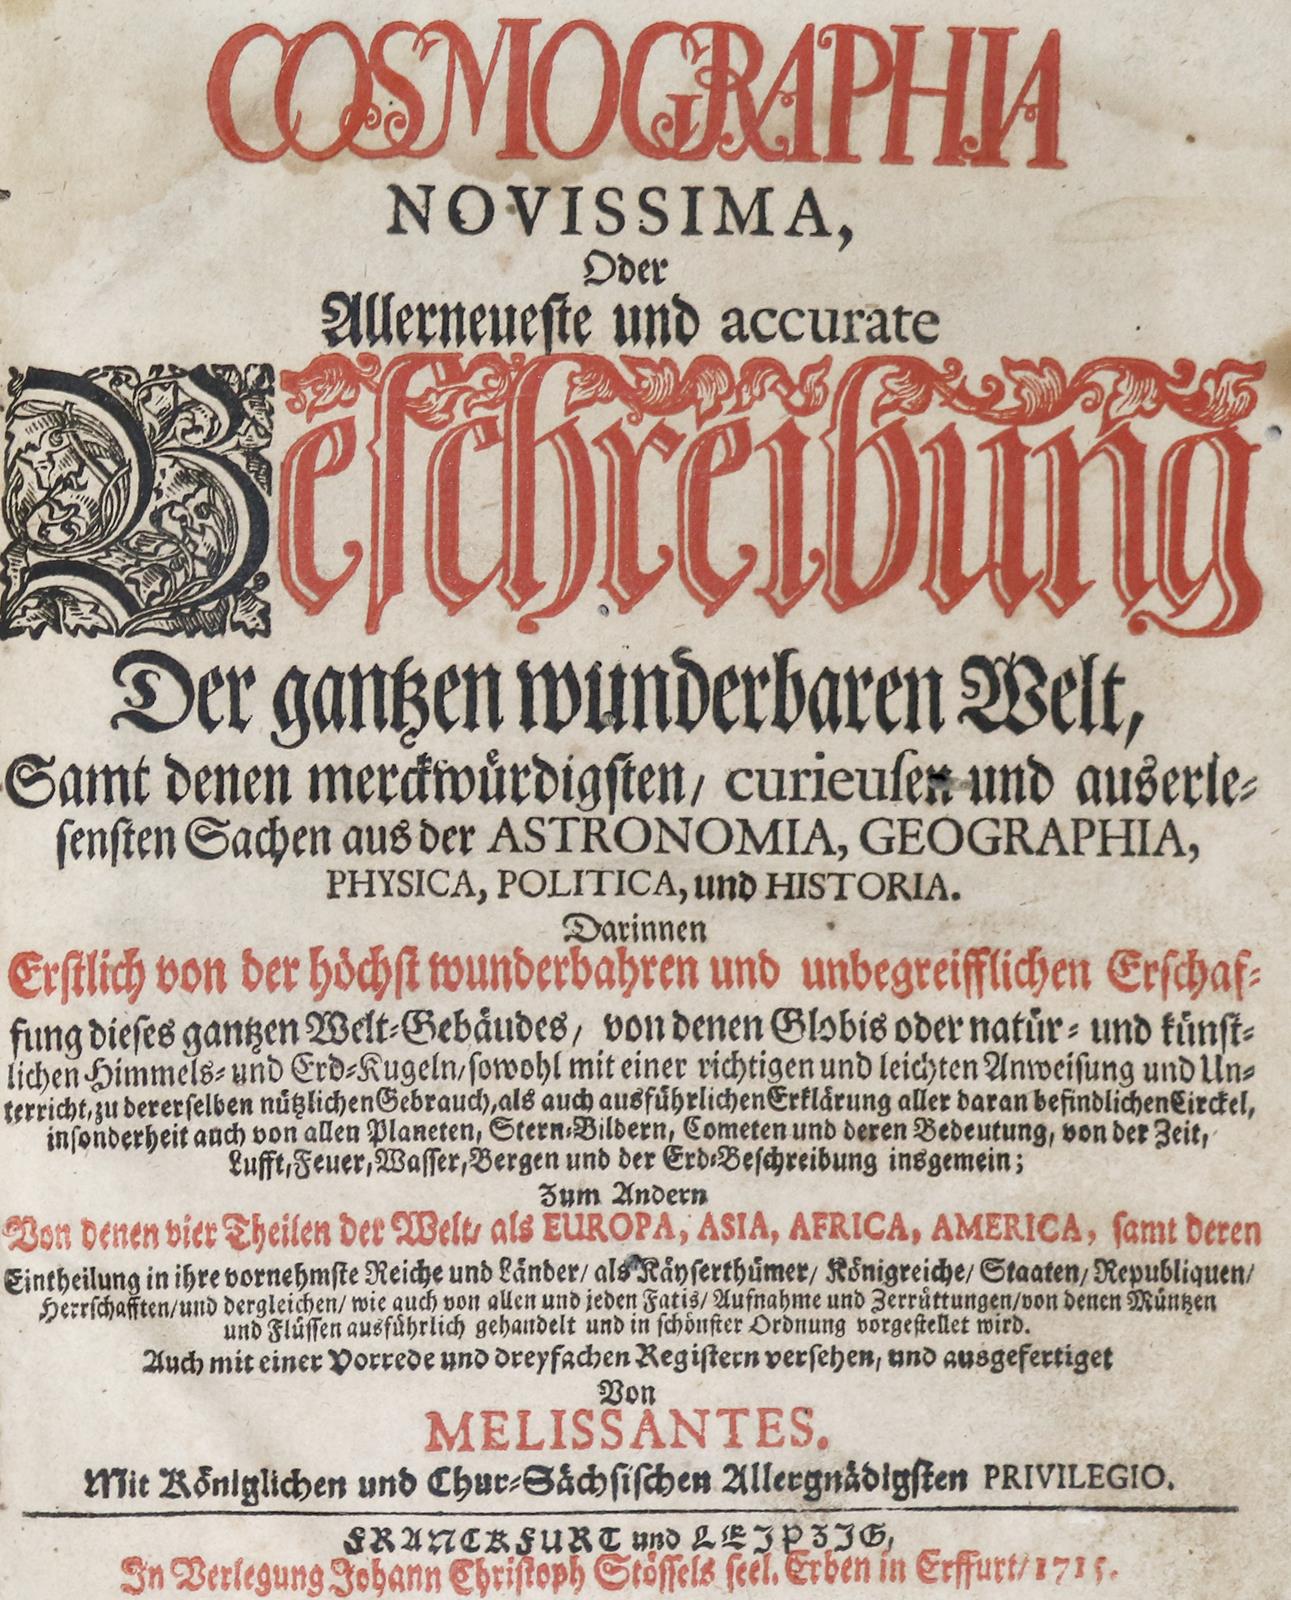 COSMOGRAPHIA
NOVISSIMA,
Oder
Allerneueste und accurate
Beschreibung
Der gantzen wunderbaren Welt,
Samt denen merckwürdigsten/ curieusen und auserle-
sensten Sachen aus der ASTRONOMIA, GEOGRAPHIA,
PHYSICA, POLITICA, und HISTORIA.
Darinnen
Erstlich von der höchst wunderbahren und unbegreifflichen Erschaf-
fung dieses gantzen Welt-Gebäudes/ von denen Globis oder natür- und künst-
lichen Himmels- und Erd-Kugeln/ sowohl mit einer richtigen und leichten Anweisung und Un-
terricht, zu dererselben nützlichen Gebrauch, als auch ausführlichen Erklärung aller daran befindlichen Circkel,
insonderheit auch von allen Planeten, Stern-Bildern, Cometen und deren Bedeutung, von der Zeit,
Lufft, Feuer, Wasser, Bergen und der Erd-Beschreibung insgemein;
Zum Andern
Von denen vier Theilen der Welt/ als EUROPA, ASIA, AFRICA, AMERICA, samt deren
Eintheilung in ihre vornehmste Reiche und Länder/ als Käyserthümer/ Königreiche/ Staaten/ Republiquen/
Herrschafften/ und dergleichen/ wie auch von allen und jeden Fatis/ Aufnahme und Zerrüttungen/ von denen Müntzen
und Flüssen ausführlich gehandelt und in schönster Ordnung vorgestellet wird.
Auch mit einer Vorrede und dreyfachen Registern versehen, und ausgefertiget
Von
MELISSANTES.
Mit Königlichen und Chur-Sächsischen Allergnädigsten PRIVILEGIO.
FRANCKFURT und LEIPZIG,
In Verlegung Johann Christoph Stössels seel. Erben in Erffurt/ 1715.